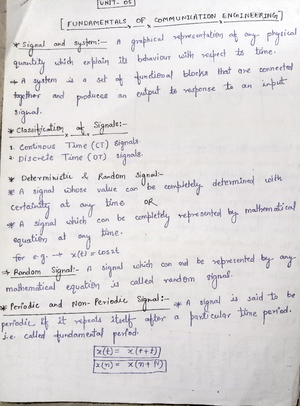 UNIT- 05
[FUNDAMENTALS OF COMMUNICATION ENGINEERING]
* Signal and system:- A graphical representation of any physical
quantity which explain its behaviour with respect to time.
→ A system is a set of functional blocks that are connected
together and produces an output to response to an input
signal.
* Classification of Signals:-
1. Continous Time (CT) signals.
2. Discrete Time (DT) signals.
* Deterministic & Random Signal:-
* A signal whose value can be completely determined with
certainity at any time OR
* A signal which can be completely represented by mathematical
equation at any time.
for e.g. → x(t) = cos2t
→ Random Signal:- A signal which can not be represented by any
mathematical equation is called random signal.
* Periodic and Non-Periodic Signal:- * A signal is said to be
periodic if it repeats itself after a particular time period.
i.e. called fundamental period.
x(t) = x(t+t)
x(n) = x(n+N)